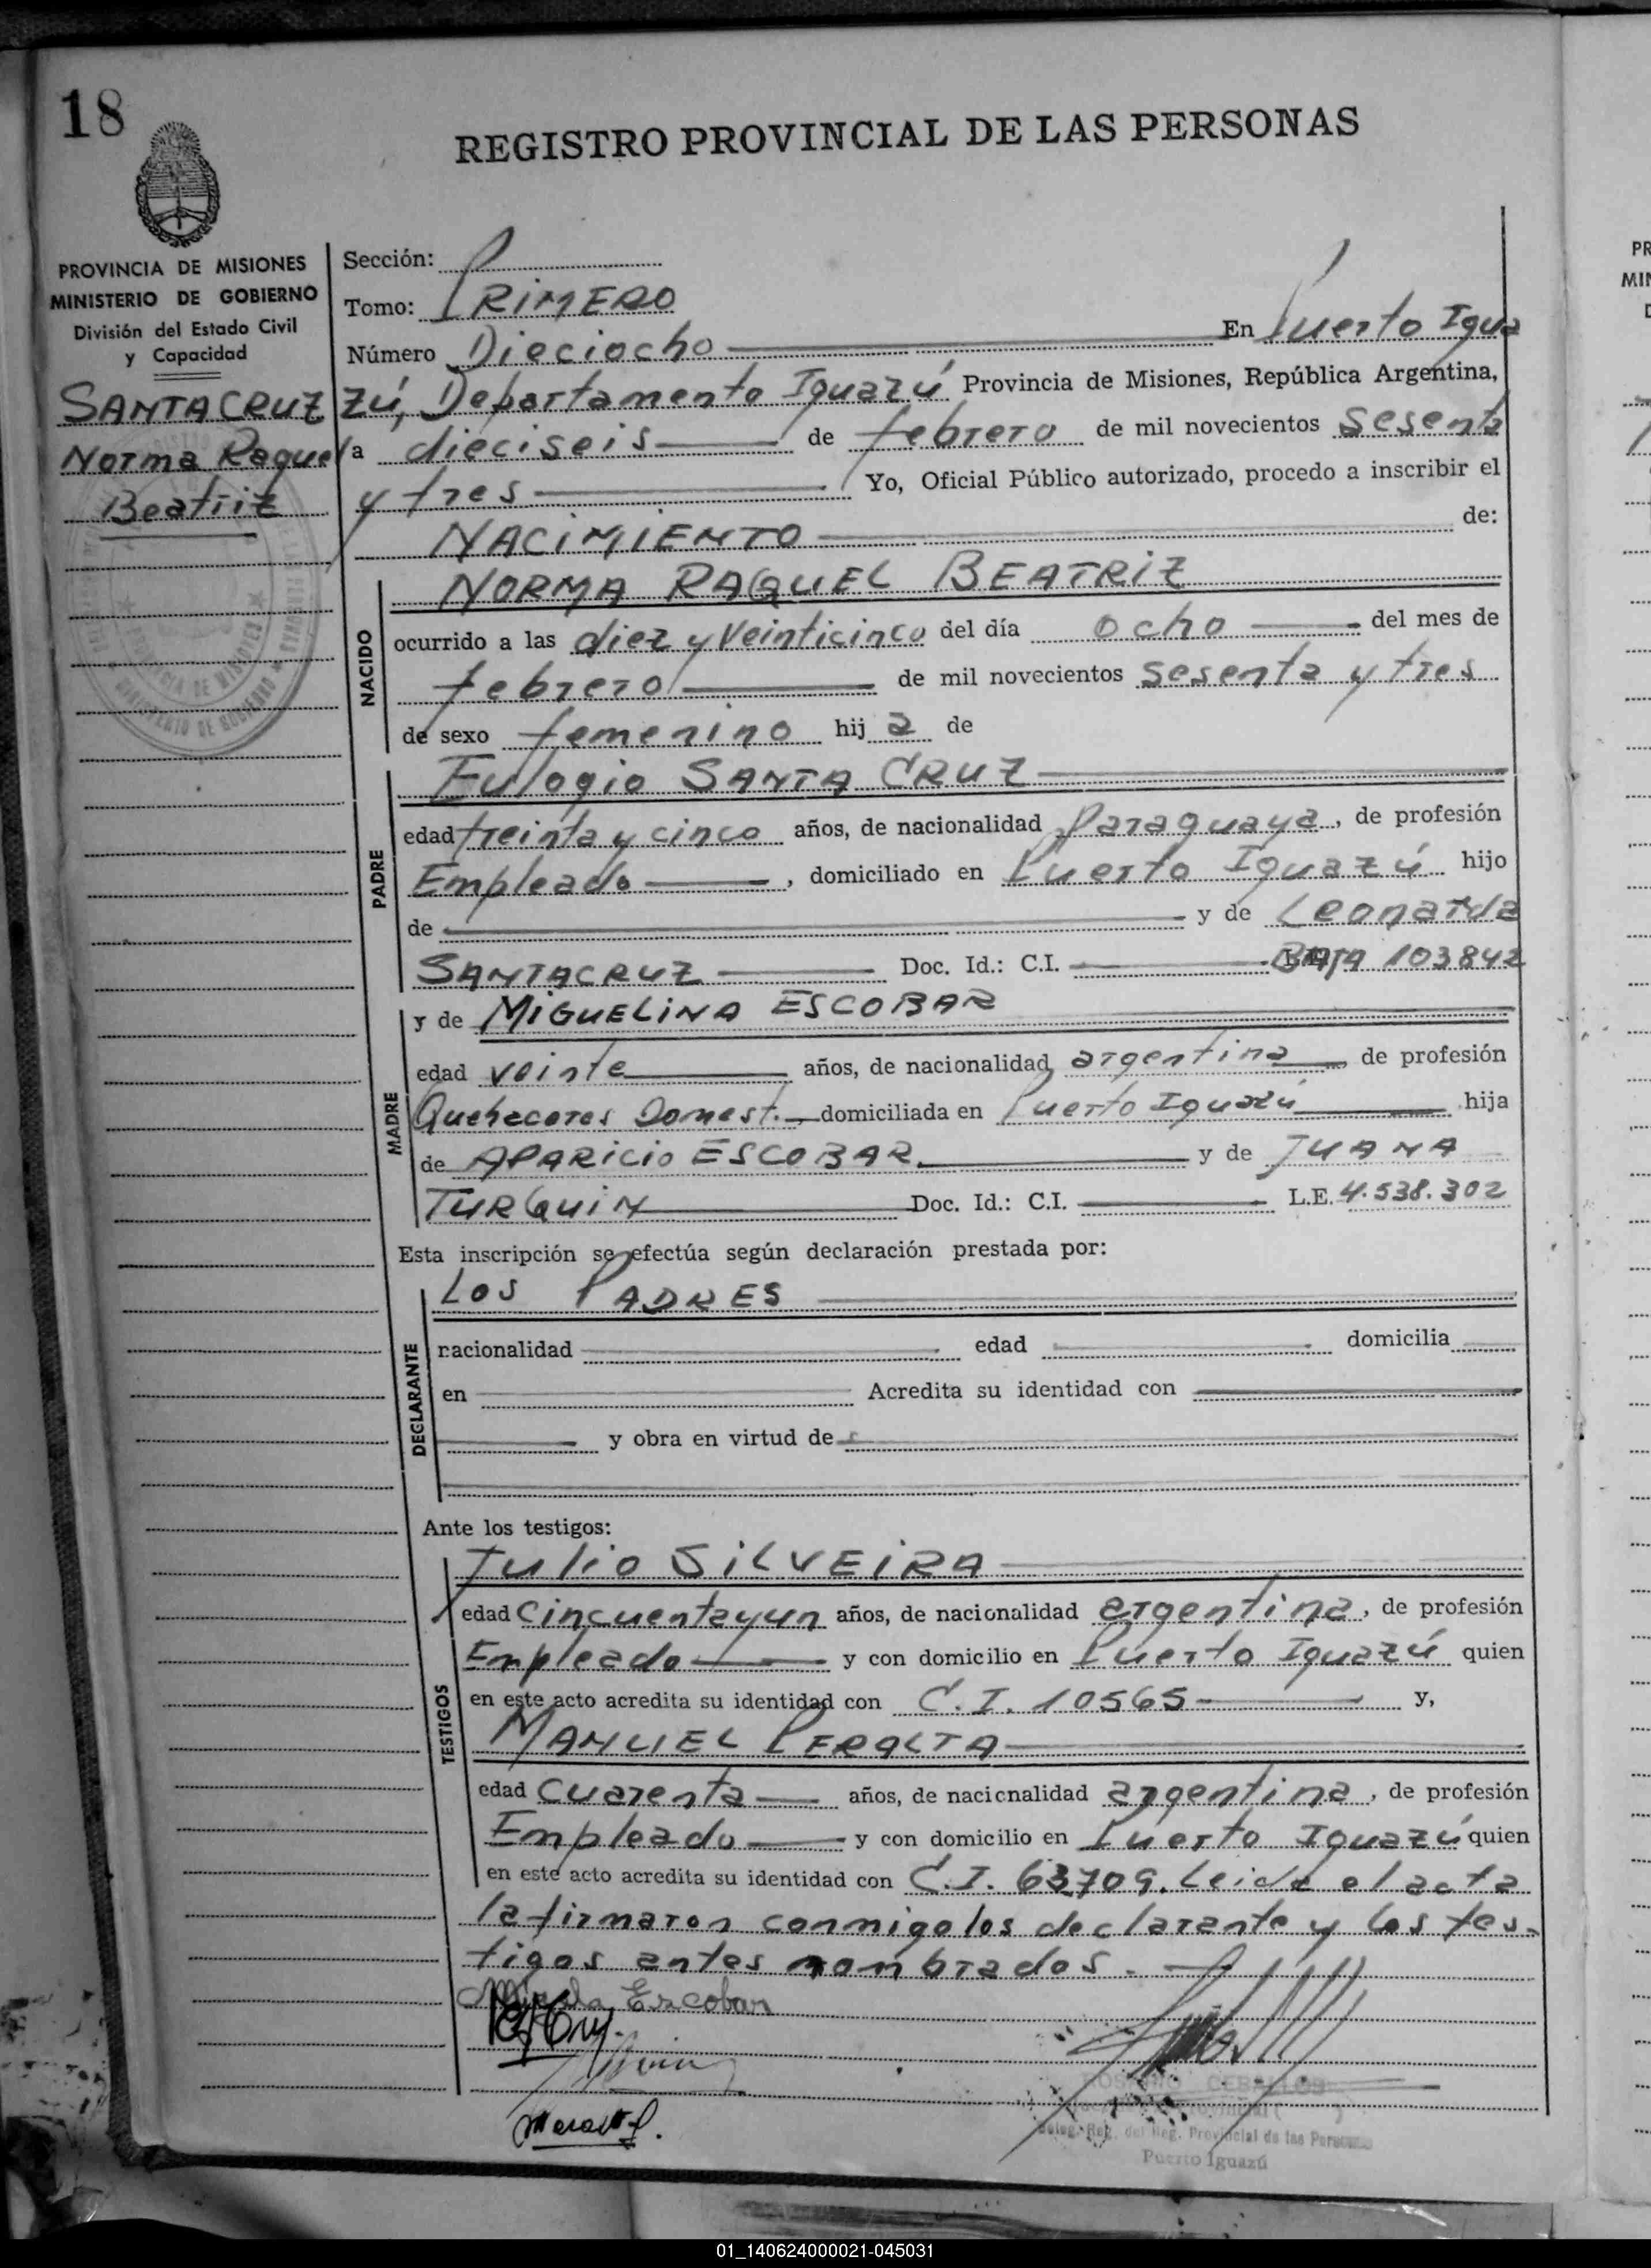 18
REGISTRO PROVINCIAL DE LAS PERSONAS
PROVINCIA DE MISIONES
MINISTERIO DE GOBIERNO
División del Estado Civil
y Capacidad
SANTACRUZ
Norma Raquel
Beatriz
Sección:
Tomo: PRIMERO
Número Dieciocho En Puerto Igua
zú, Departamento Iguazú Provincia de Misiones, República Argentina,
a dieciseis de febrero de mil novecientos sesenta
y tres Yo, Oficial Público autorizado, procedo a inscribir el
NACIMIENTO de:
NACIDO
NORMA RAQUEL BEATRIZ
ocurrido a las diez y Veinticinco del día ocho del mes de
febrero de mil novecientos sesenta y tres
de sexo femenino hija de
PADRE
Eulogio SANTA CRUZ
edad treinta y cinco años, de nacionalidad Paraguaya, de profesión
Empleado, domiciliado en Puerto Iguazú hijo
de y de Leonarda
SANTACRUZ Doc. Id.: C.I. BAJA 103842
MADRE
y de MIGUELINA ESCOBAR
edad veinte años, de nacionalidad argentina de profesión
Quehaceres Domest. domiciliada en Puerto Iguazú hija
de APARICIO ESCOBAR y de JUANA
TURQUIN Doc. Id.: C.I. L.E. 4.538.302
Esta inscripción se efectúa según declaración prestada por:
DECLARANTE
Los PADRES
nacionalidad edad domicilia
en Acredita su identidad con
y obra en virtud de
Ante los testigos:
TESTIGOS
Julio SILVEIRA
edad Cincuenta y un años, de nacionalidad argentina, de profesión
Empleado y con domicilio en Puerto Iguazú quien
en este acto acredita su identidad con C.I. 10565 y,
MANUEL PERALTA
edad Cuarenta años, de nacionalidad argentina, de profesión
Empleado y con domicilio en Puerto Iguazú quien
en este acto acredita su identidad con C.I. 63709. Leida el acta
la firmaron conmigo los declarante y los tes-
tigos antes nombrados.
Escobar
CEBALLOS
Deleg. Reg. del Reg. Provincial de las Personas
Puerto Iguazú
01_140624000021-045031